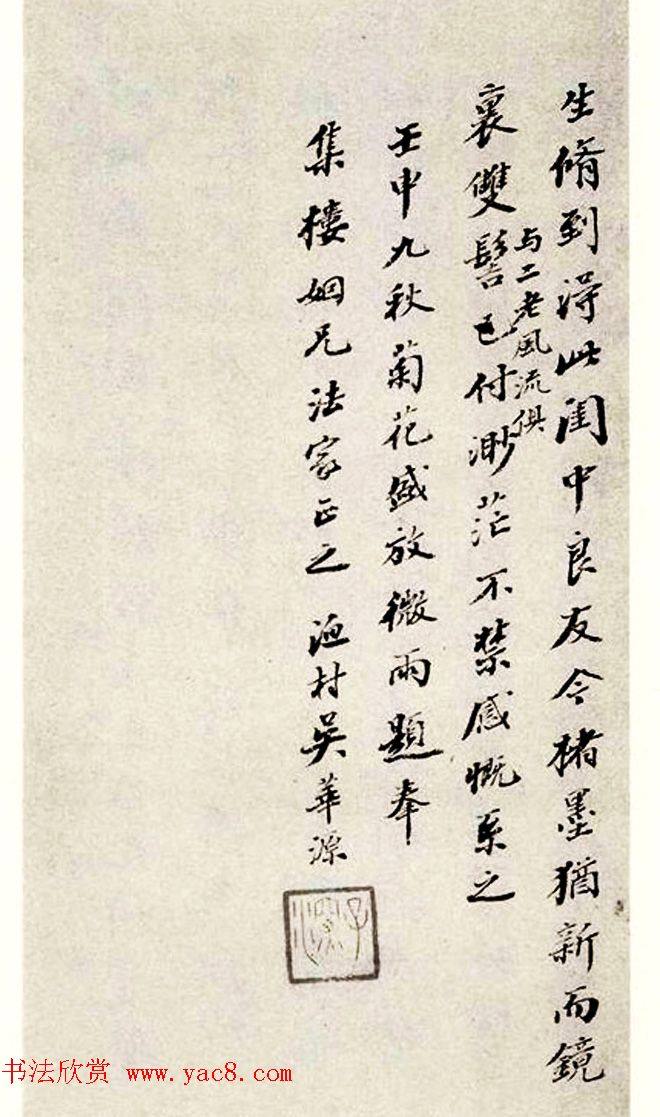 生脩到得此閨中良友今楮墨猶新而鏡
与二老風流俱
裏雙髻已付渺茫不禁感慨系之
壬申九秋菊花盛放微雨題奉
集樓姻兄法家正之 漁村吳華源
书法欣赏 www.yac8.com